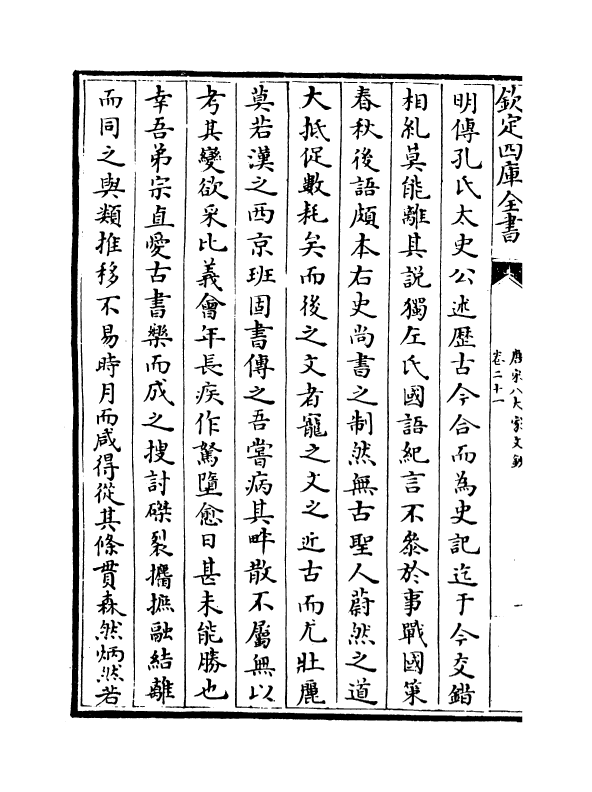 欽定四庫全書
唐宋八大家文鈔
卷二十一
明傳孔氏太史公述歷古今合而為史記迄于今交錯
相糺莫能離其説獨左氏國語紀言不叅於事戰國策
春秋後語頗本右史尚書之制然無古聖人蔚然之道
大抵促數耗矣而後之文者寵之文之近古而尤壯麗
莫若漢之西京班固書傳之吾嘗病其畔散不屬無以
考其變欲采比義會年長疾作駑墮愈日甚未能勝也
幸吾弟宗直愛古書樂而成之搜討磔裂攟摭融結離
而同之與類推移不易時月而咸得從其條貫森然炳然若